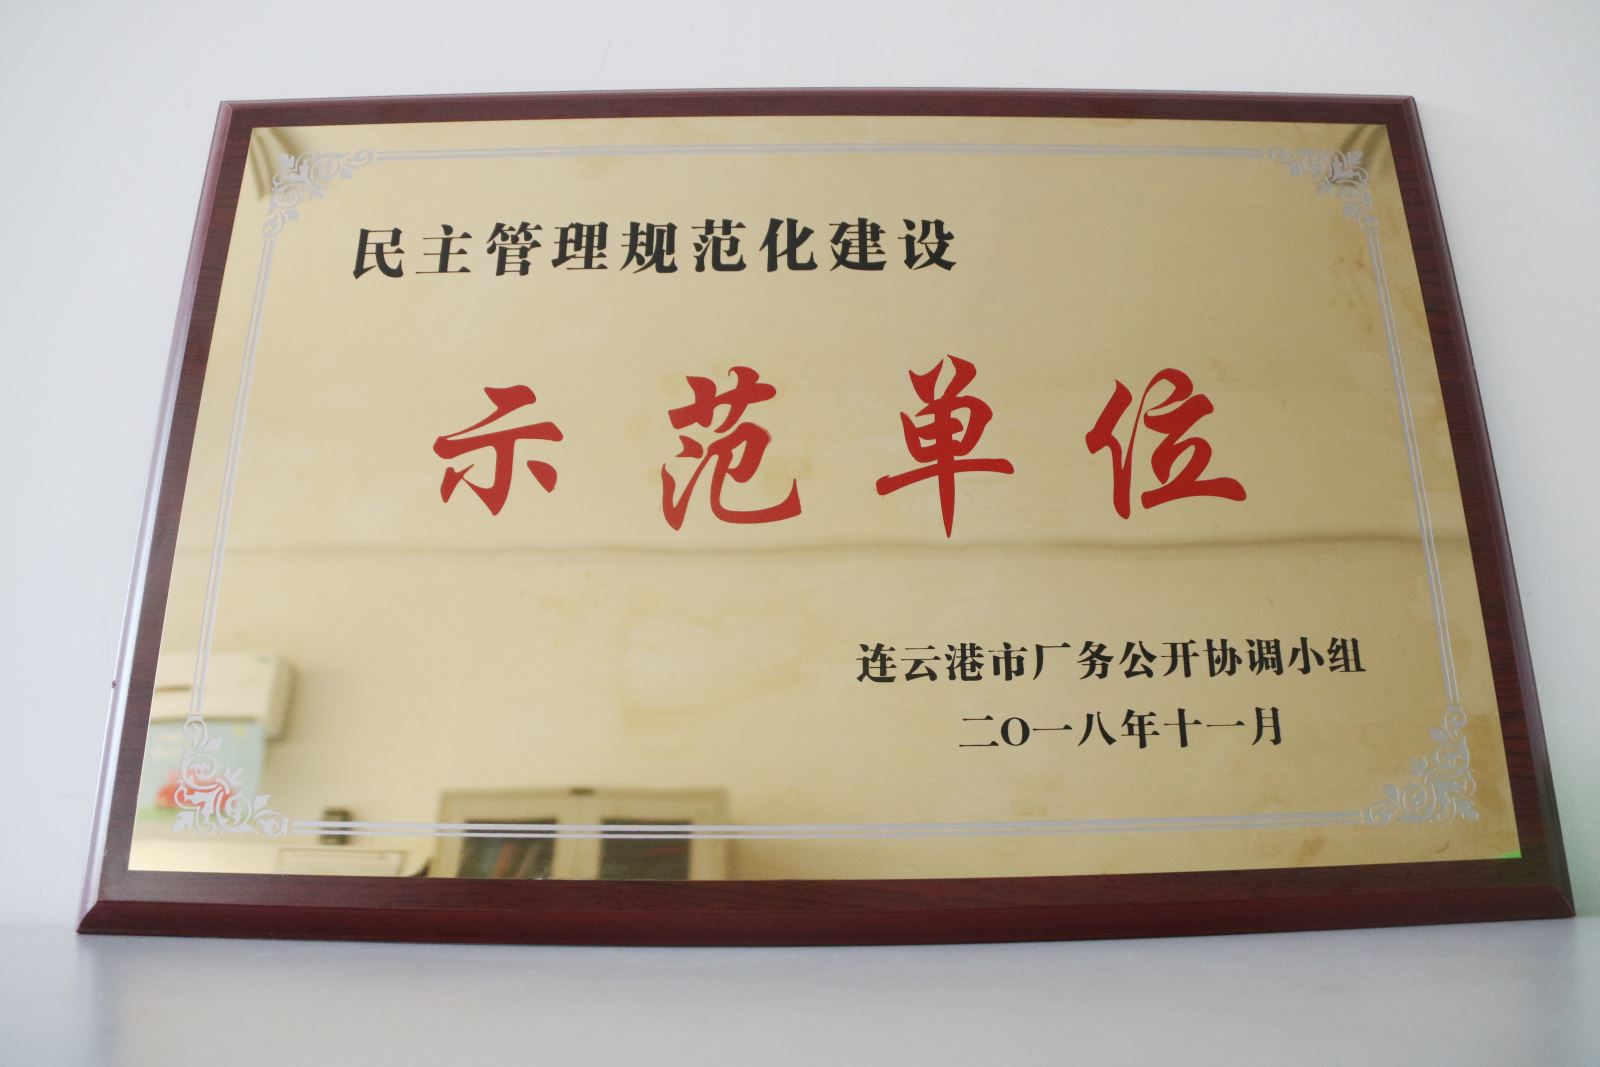 民主管理规范化建设
示范单位
连云港市厂务公开协调小组
二O一八年十一月